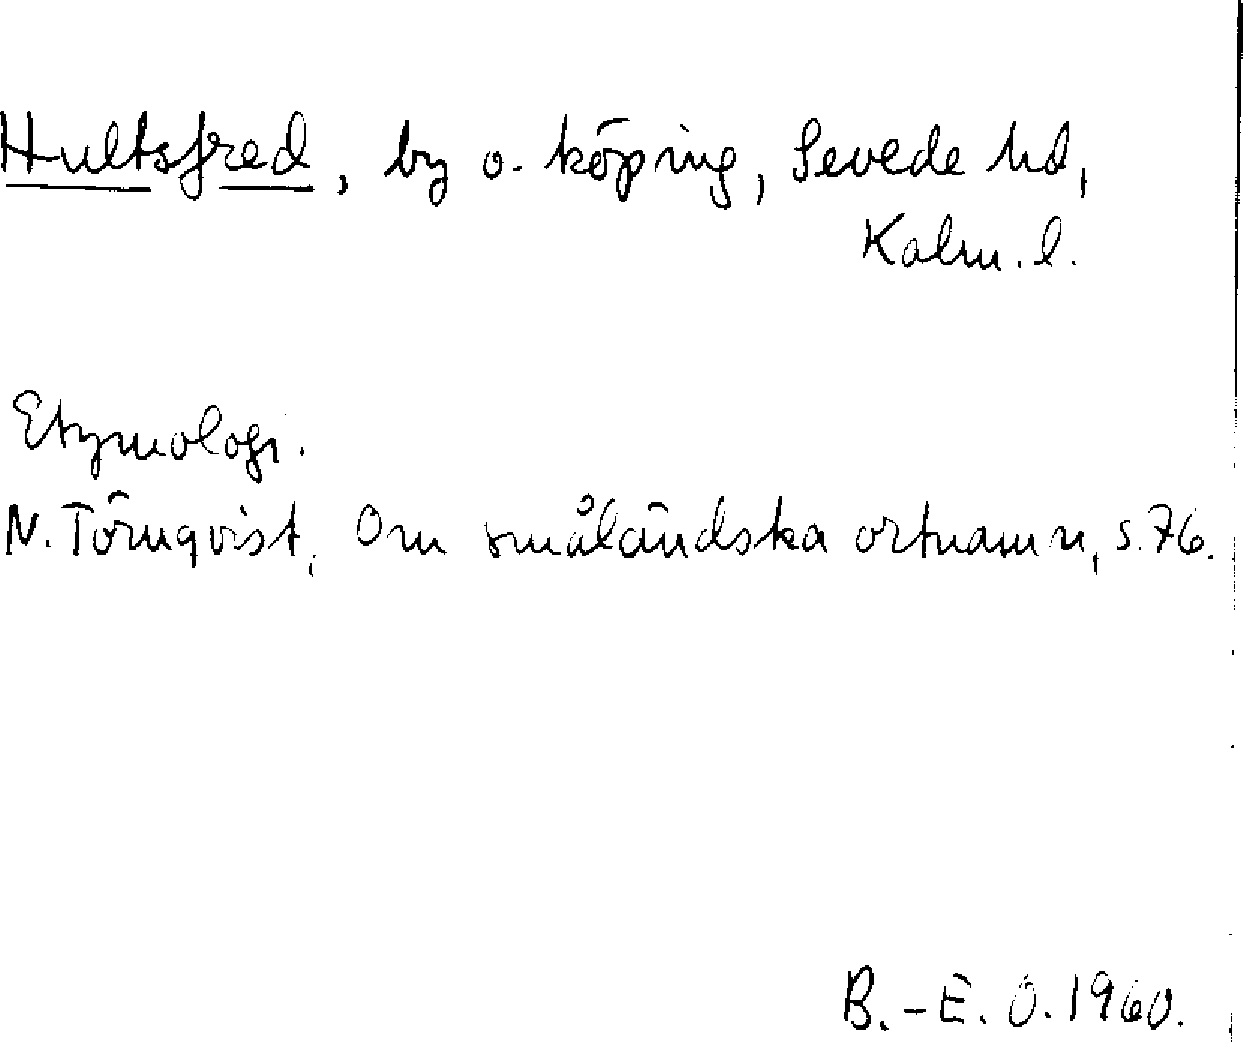 Hultsfred, by o. köping, Sevede hd,
Kalm. l.
Etymologi.
N. Törnqvist, Om småländska ortnamn, s. 76.
B.-E. O. 1960.